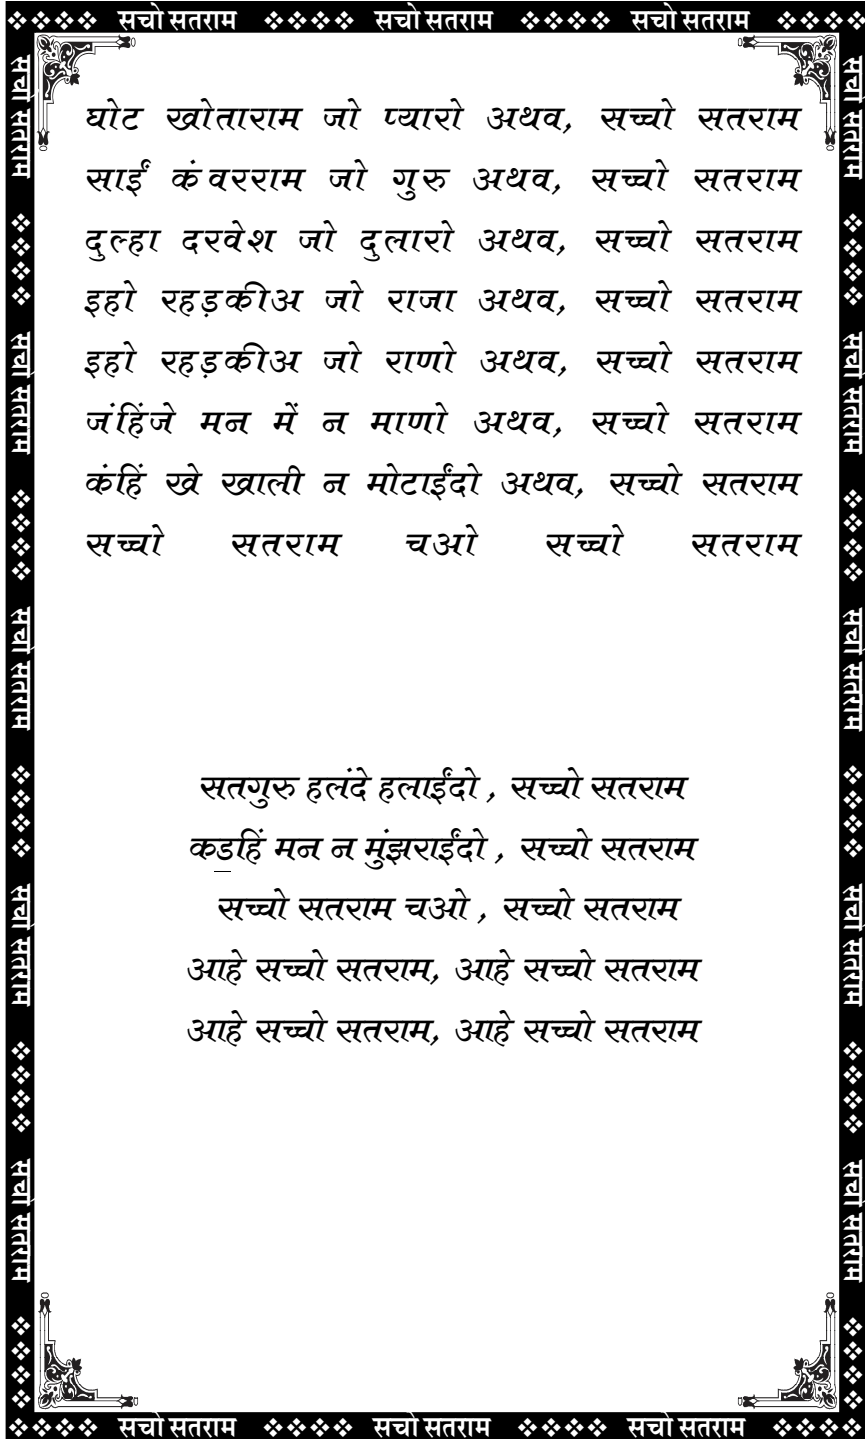 सचो सतराम सचो सतराम सचो सतराम
घोट खोताराम जो प्यारो अथव, सच्चो सतराम
साईं कंवरराम जो गुरु अथव, सच्चो सतराम
दुल्हा दरवेश जो दुलारो अथव, सच्चो सतराम
इहो रहड़कीअ जो राजा अथव, सच्चो सतराम
इहो रहड़कीअ जो राणो अथव, सच्चो सतराम
जंहिंजे मन में न माणो अथव, सच्चो सतराम
कंहिं खे खाली न मोटाईंदो अथव, सच्चो सतराम
सच्चो सतराम चओ सच्चो सतराम
सतगुरु हलंदे हलाईंदो , सच्चो सतराम
कॾहिं मन न मुंझराईंदो , सच्चो सतराम
सच्चो सतराम चओ , सच्चो सतराम
आहे सच्चो सतराम, आहे सच्चो सतराम
आहे सच्चो सतराम, आहे सच्चो सतराम
सचो सतराम
सचो सतराम
सचो सतराम
सचो सतराम
सचो सतराम
सचो सतराम
सचो सतराम
सचो सतराम
सचो सतराम
सचो सतराम
सचो सतराम सचो सतराम सचो सतराम